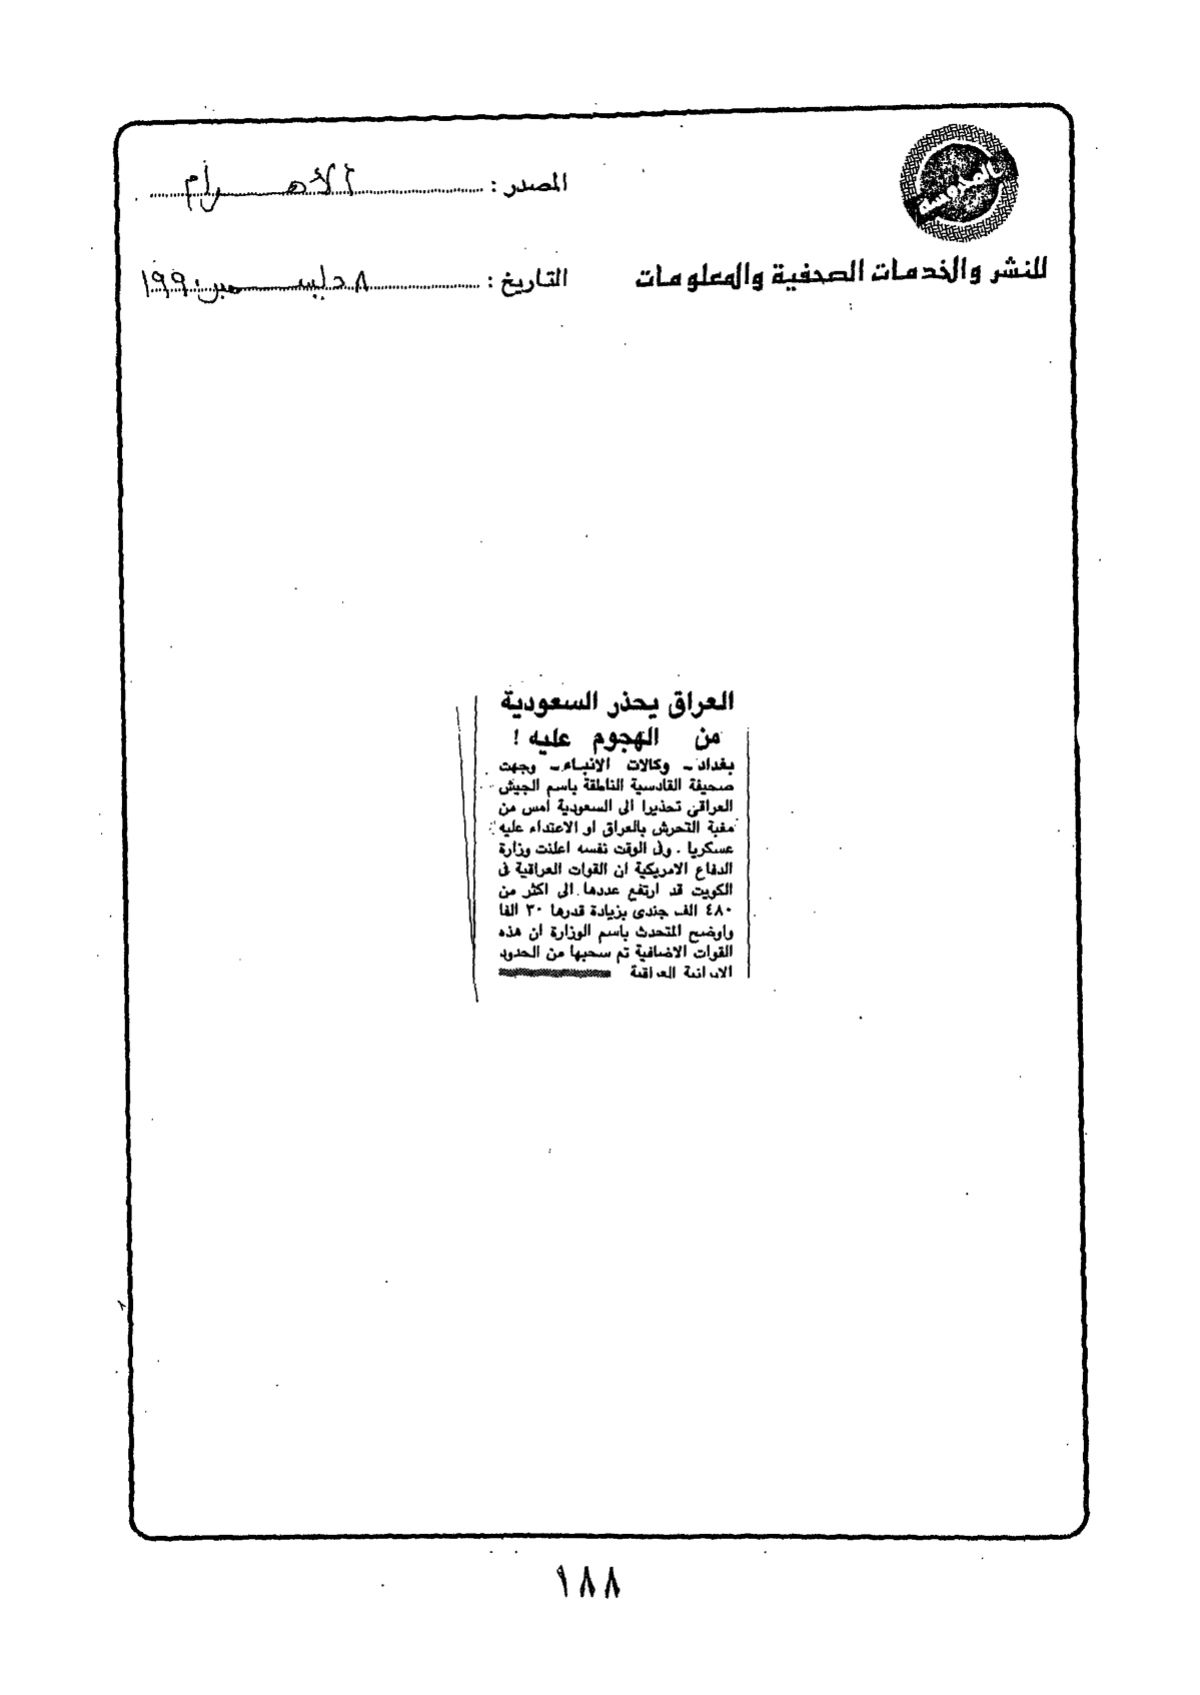 المصدر : الأهرام
للنشر والخدمات الصحفية والمعلومات
التاريخ : ٨ ديسمبر ١٩٩٠
العراق يحذر السعودية
من الهجوم عليه !
بغداد - وكالات الانباء - وجهت
صحيفة القادسية الناطقة باسم الجيش
العراقى تحذيرا الى السعودية امس من
مغبة التحرش بالعراق او الاعتداء عليه
عسكريا . وفى الوقت نفسه اعلنت وزارة
الدفاع الامريكية ان القوات العراقية فى
الكويت قد ارتفع عددها الى اكثر من
٤٨٠ الف جندى بزيادة قدرها ٣٠ الفا
واوضح المتحدث باسم الوزارة ان هذه
القوات الاضافية تم سحبها من الحدود
الايرانية العراقية
١٨٨